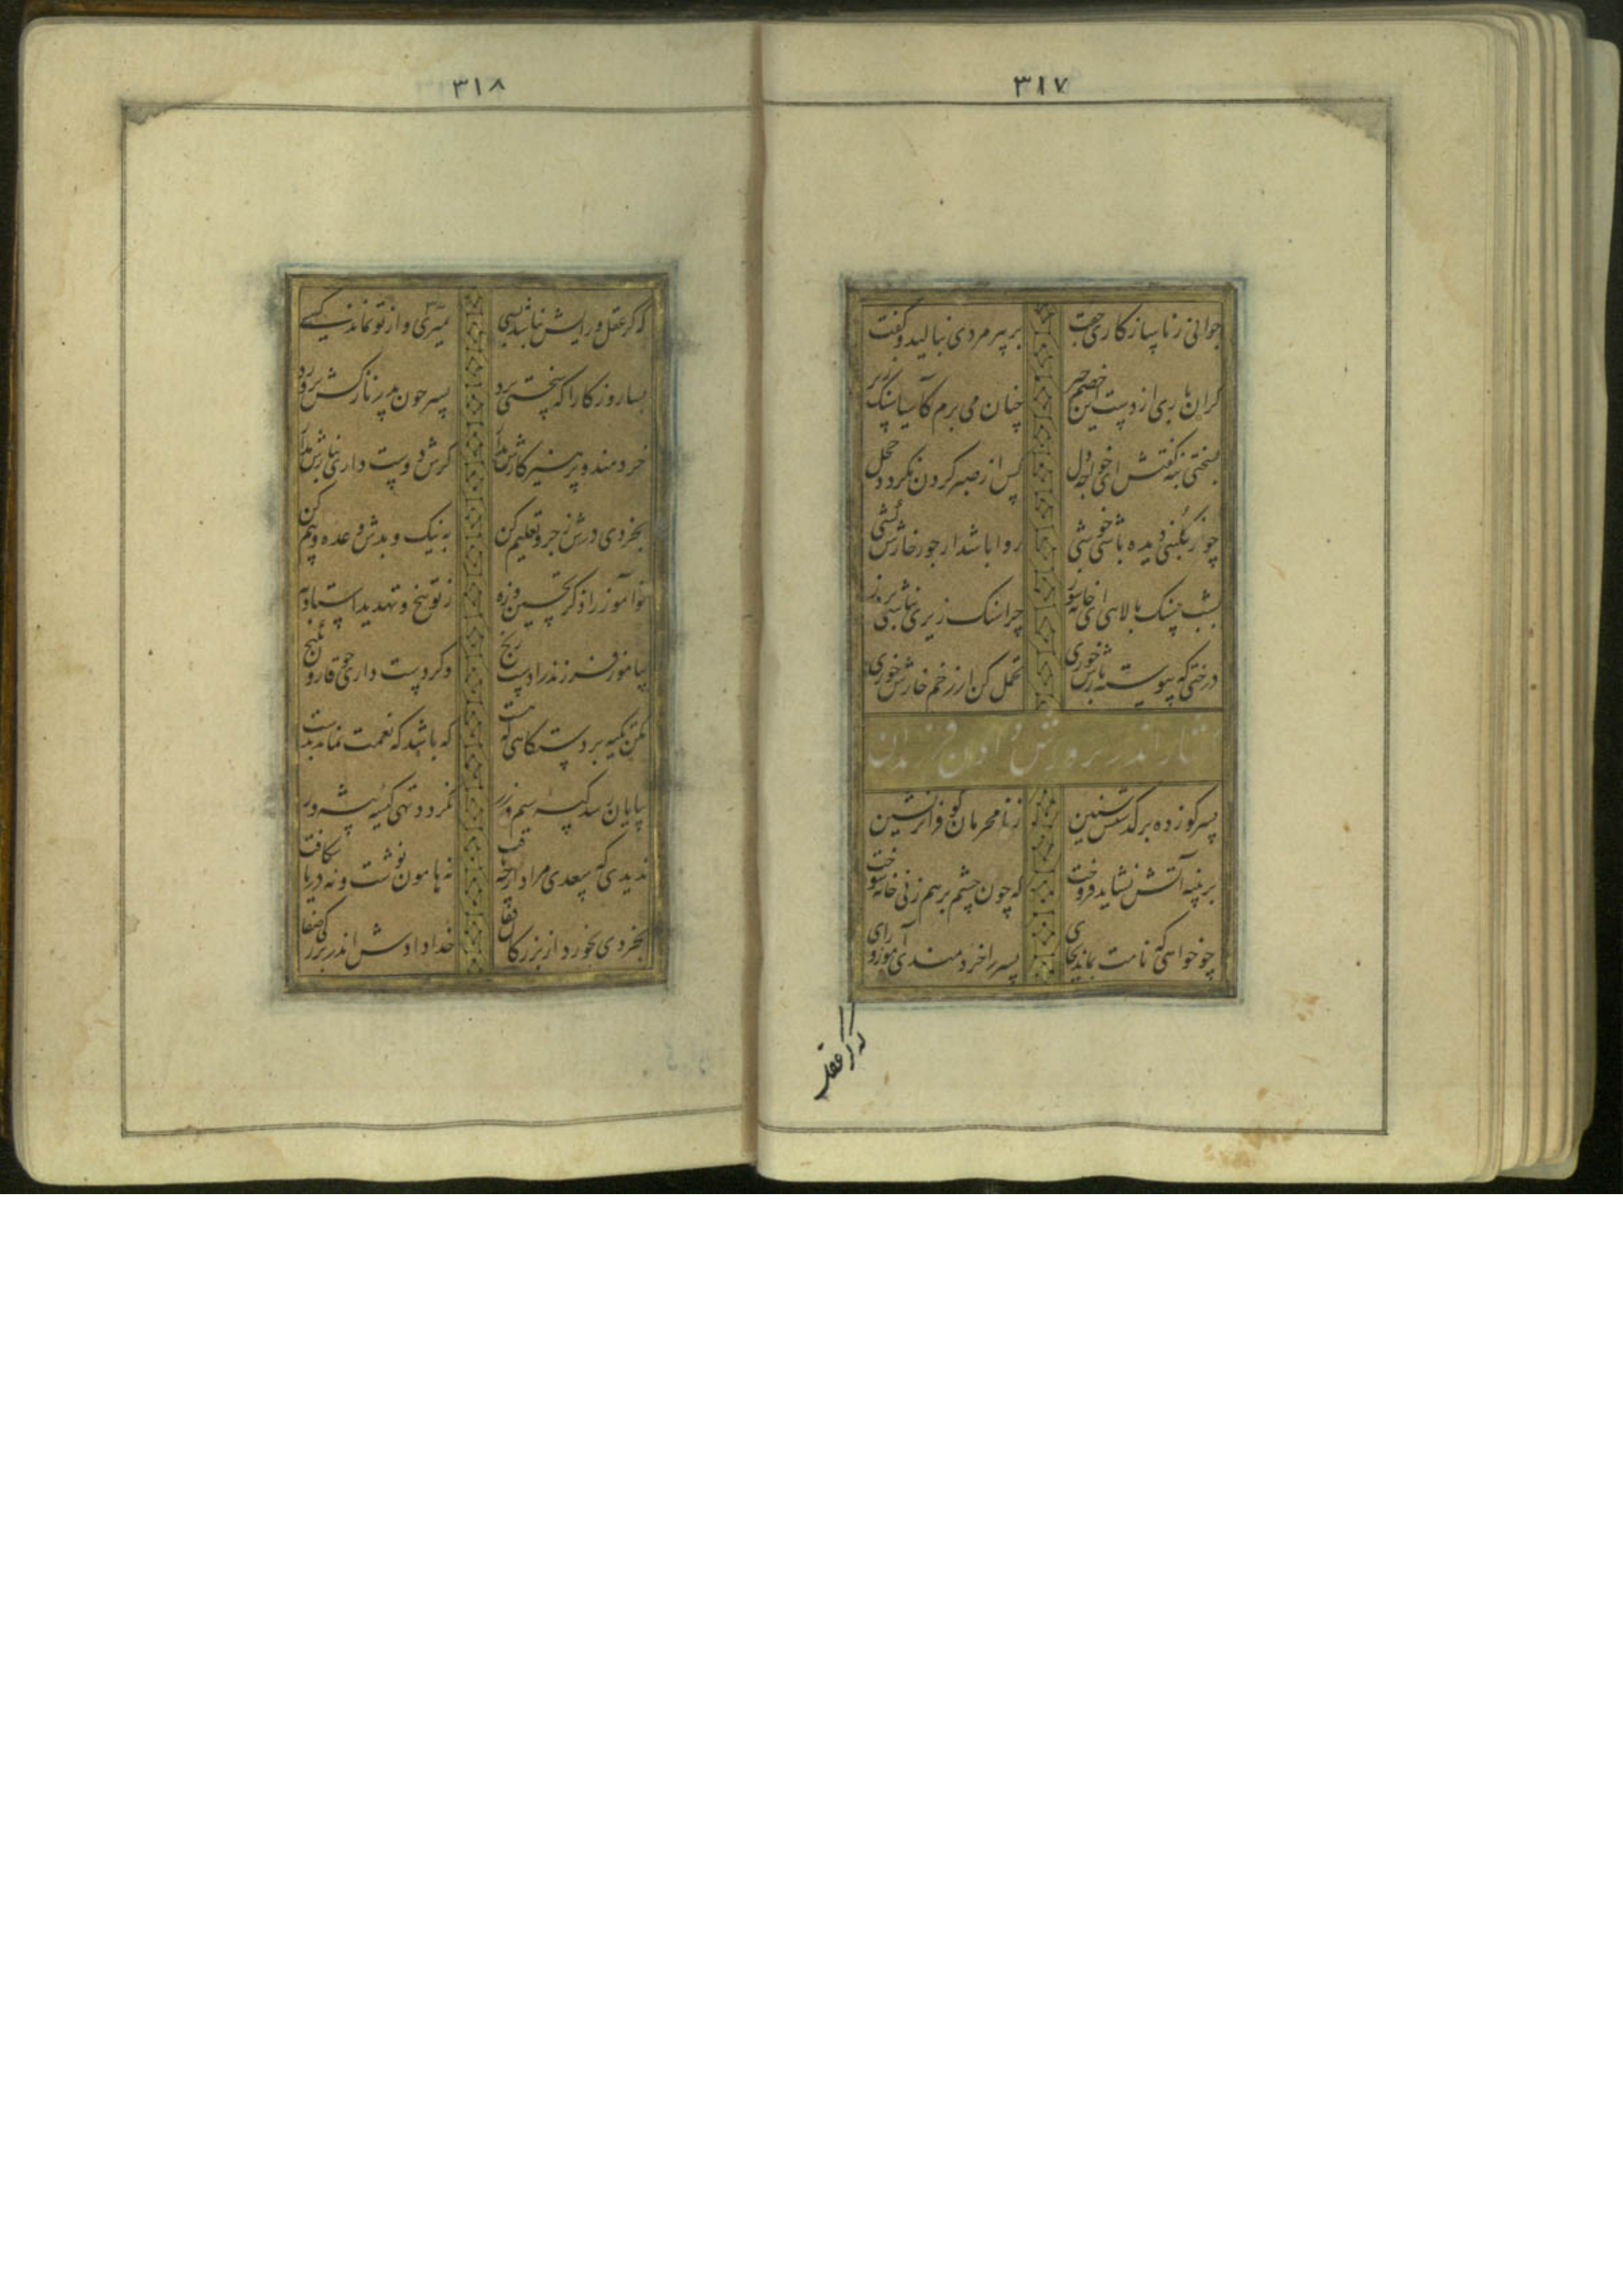 ۳۱۷
جوانی ز ناسازکاری جفت
بر پیرمردی بنالید و گفت
کران باری از دست این خصم چیر
چنان می برم کآسیا سنک زیر
بسختی بنه گفتش ای خواجه دل
پس از صبر کردن نکردد خجل
چو از گلبنی دیده باشی خوشی
روا باشد ار جور خارش کشی
بشب سنک بالاهی ای خانه سوز
چرا سنک زیری نباشی بروز
درختی که پیوسته بارش خوری
تحمل کن ار زخم خارش خوری
گفتار اندر پرورش دادن فرزندان
پسر کو ز ده بر گذشتش سنین
ز نامحرمان کو فراتر نشین
بر پنبه آتش نشاید فروخت
که چون چشم بر هم زنی خانه سوخت
چو خواهی که نامت بماند بجای
پسر را خردمندی آموز و رای
که کر عقل
۳۱۸
که گر عقل و رایش نباشد بسی
بمیری و از تو نماند کسی
بسا روزکارا که سختی برد
پسر چون پدر نازکش پرورد
خردمند و پرهیزکارش بدار
کرش دوست داری بنازش مدار
بخردی درش زجر و تعلیم کن
به نیک و بدش وعده و بیم کن
نوآموز را ذکر تحسین و زه
ز توبیخ و تهدید استاد به
بیاموز فرزند را دست رنج
وکر دست داری چو قارون کنج
مکن تکیه بر دستکاهی که هست
که باشد که نعمت نماند بدست
بپایان رسد کیسه سیم و زر
نکردد تهی کیسه پیشه ور
ندیدی که سعدی مراد از چه یافت
نه هامون نوشت و نه دریا شکافت
بخردی بخورد از بزرکان قفا
خدا دادش اندر بزرکی صفا